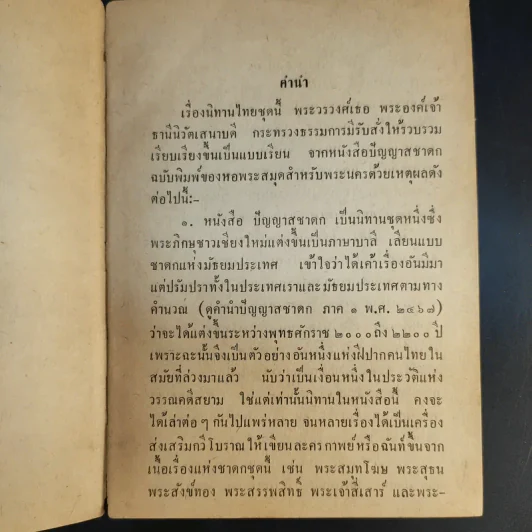 คำนำ
เรื่องนิทานไทยชุดนี้ พระวรวงศ์เธอ พระองค์เจ้า
ธานีนิวัตเสนาบดี กระทรวงธรรมการมีรับสั่งให้รวบรวม
เรียบเรียงขึ้นเป็นแบบเรียน จากหนังสือปัญญาสชาดก
ฉบับพิมพ์ของหอพระสมุดสำหรับพระนครด้วยเหตุผลดัง
ต่อไปนี้:-
๑. หนังสือ ปัญญาสชาดก เป็นนิทานชุดหนึ่งซึ่ง
พระภิกษุชาวเชียงใหม่แต่งขึ้นเป็นภาษาบาลี เลียนแบบ
ชาดกแห่งมัธยมประเทศ เข้าใจว่าได้เค้าเรื่องอันมีมา
แต่ปรัมปราทั้งในประเทศเราและมัธยมประเทศตามทาง
คำนวณ (ดูคำนำปัญญาสชาดก ภาค ๑ พ.ศ. ๒๔๖๗)
ว่าจะได้แต่งขึ้นระหว่างพุทธศักราช ๒๐๐๐ถึง ๒๒๐๐ ปี
เพราะฉะนั้นจึงเป็นตัวอย่างอันหนึ่งแห่งฝีปากคนไทยใน
สมัยที่ล่วงมาแล้ว นับว่าเป็นเงื่อนหนึ่งในประวัติแห่ง
วรรณคดีสยาม ใช่แต่เท่านั้นนิทานในหนังสือนี้ คงจะ
ได้เล่าต่อ ๆ กันไปแพร่หลาย จนหลายเรื่องได้เป็นเครื่อง
ส่งเสริมกวีโบราณให้เขียนละคร กาพย์ หรือฉันท์ขึ้นจาก
เนื้อเรื่องแห่งชาดกชุดนี้ เช่น พระสมุทโฆษ พระสุธน
พระสังข์ทอง พระสรรพสิทธิ์ พระเจ้าสี่เสาร์ และพระ-